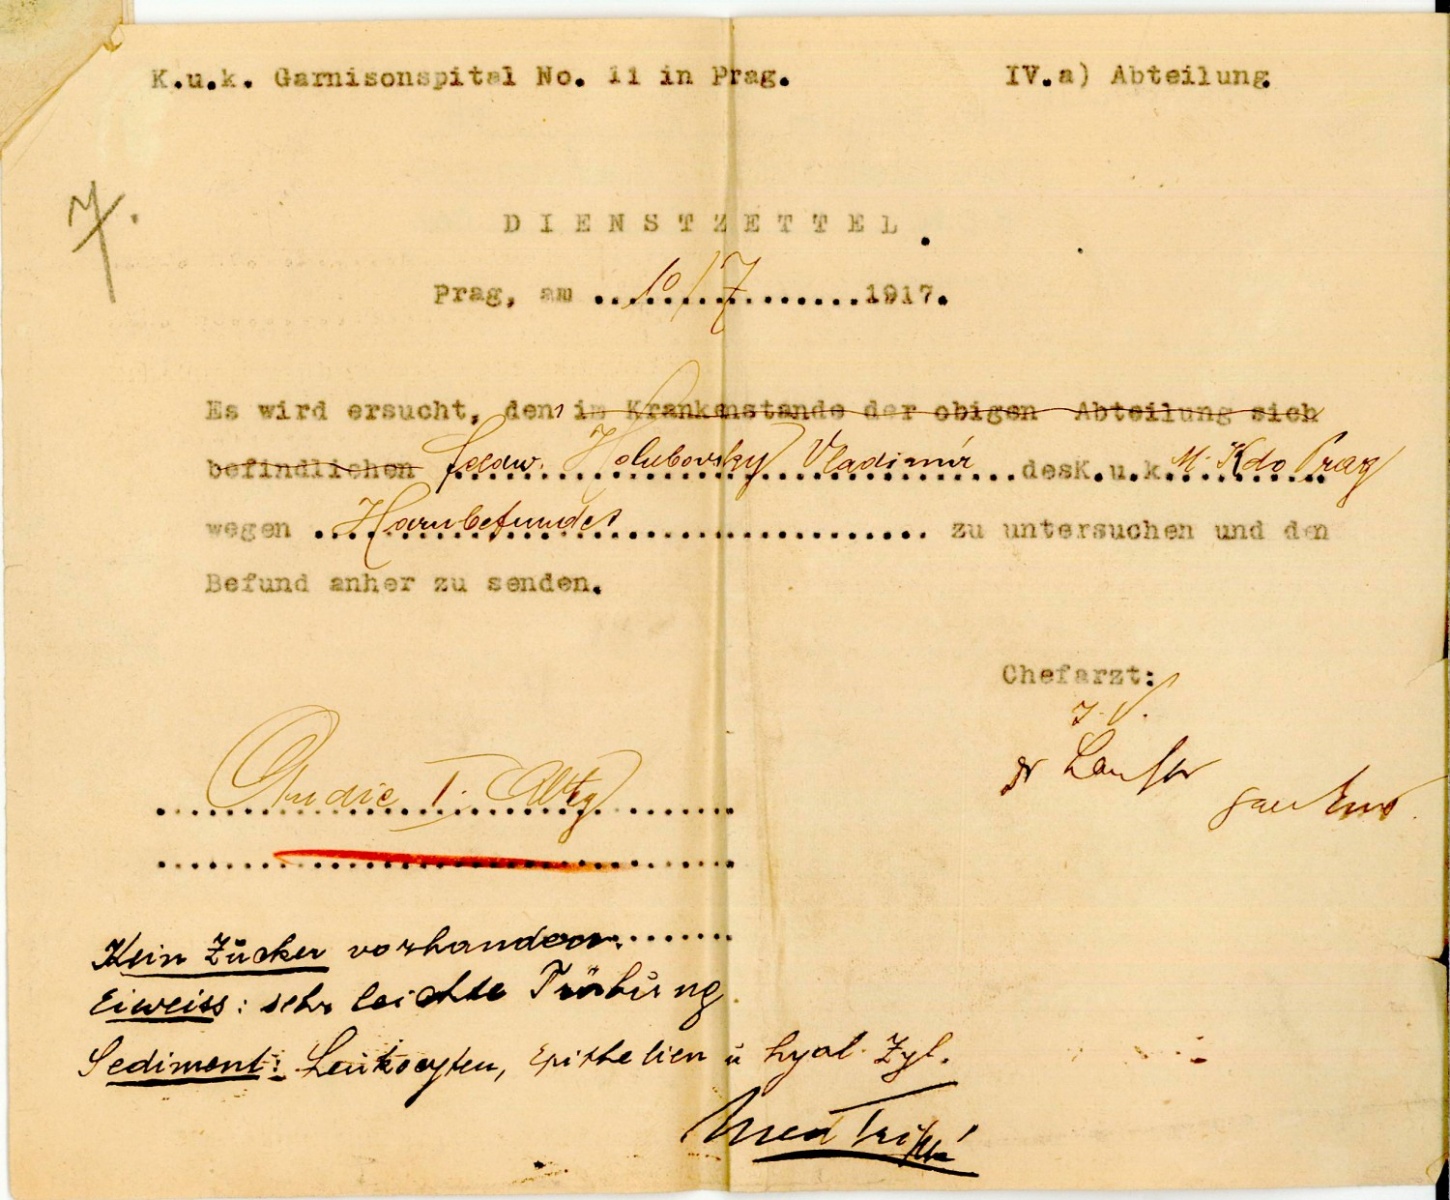 K.u.k. Garnisonspital No. 11 in Prag. IV.a) Abteilung
7.
DIENSTZETTEL.
Prag, am 10/7 1917.
Es wird ersucht, den im Krankenstande der obigen Abteilung sich
befindlichen Feldw. Holubovsky Vladimír des K.u.k. M. Kdo Prag
wegen Harnbefundes zu untersuchen und den
Befund anher zu senden.
Chefarzt:
I. V.
Dr
An die I. Abtg
Kein Zucker vorhanden.
Eiweiss: sehr leichte Trübung
Sediment: Leukocyten, Epithelien u hyal. Zyl.